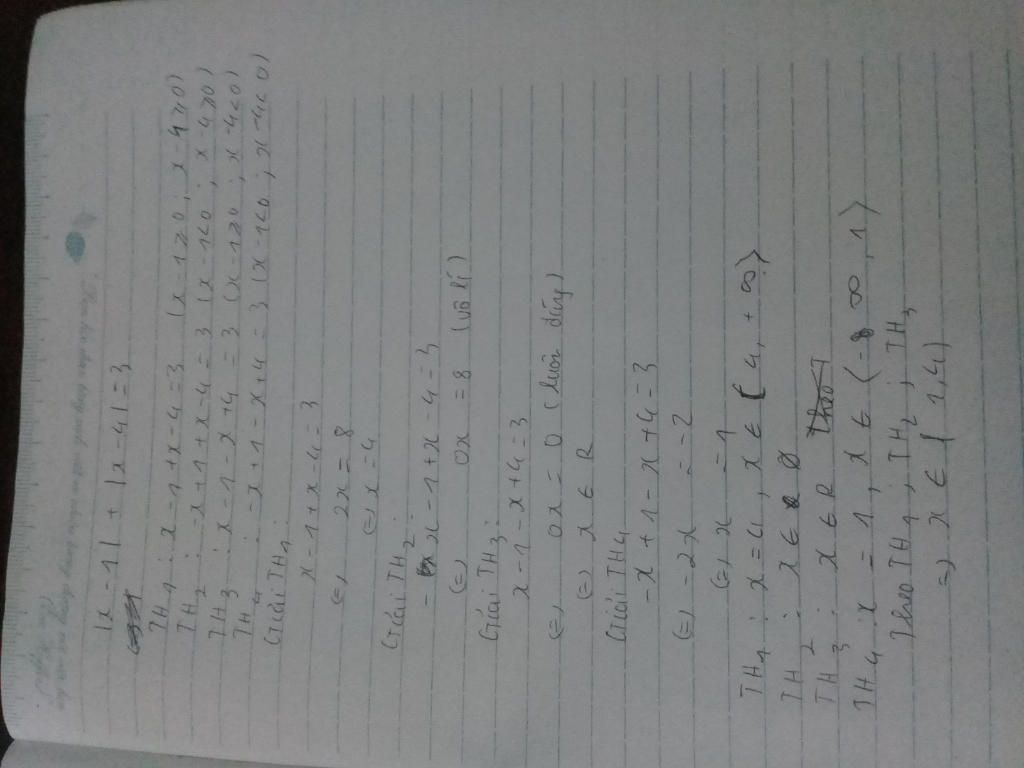 |x-1| + |x-4| = 3
TH1: x-1+x-4=3 (x-1≥0; x-4≥0)
TH2: -x+1+x-4=3 (x-1<0; x-4≥0)
TH3: x-1-x+4=3 (x-1≥0; x-4<0)
TH4: -x+1-x+4=3 (x-1<0; x-4<0)
Giải TH1:
x-1+x-4=3
(=) 2x=8
(=) x=4
Giải TH2:
- x-1+x-4=3
(=) 0x=8 (vô lí)
Giải TH3:
x-1-x+4=3
(=) 0x=0 (luôn đúng)
(=) x∈R
Giải TH4
-x+1-x+4=3
(=) -2x=-2
(=) x=1
TH1: x=4, x∈[4,+∞)
TH2: x∈∅
TH3: x∈R
TH4: x=1, x∈(-∞,1)
Theo TH1; TH2; TH3
=) x∈[1,4)